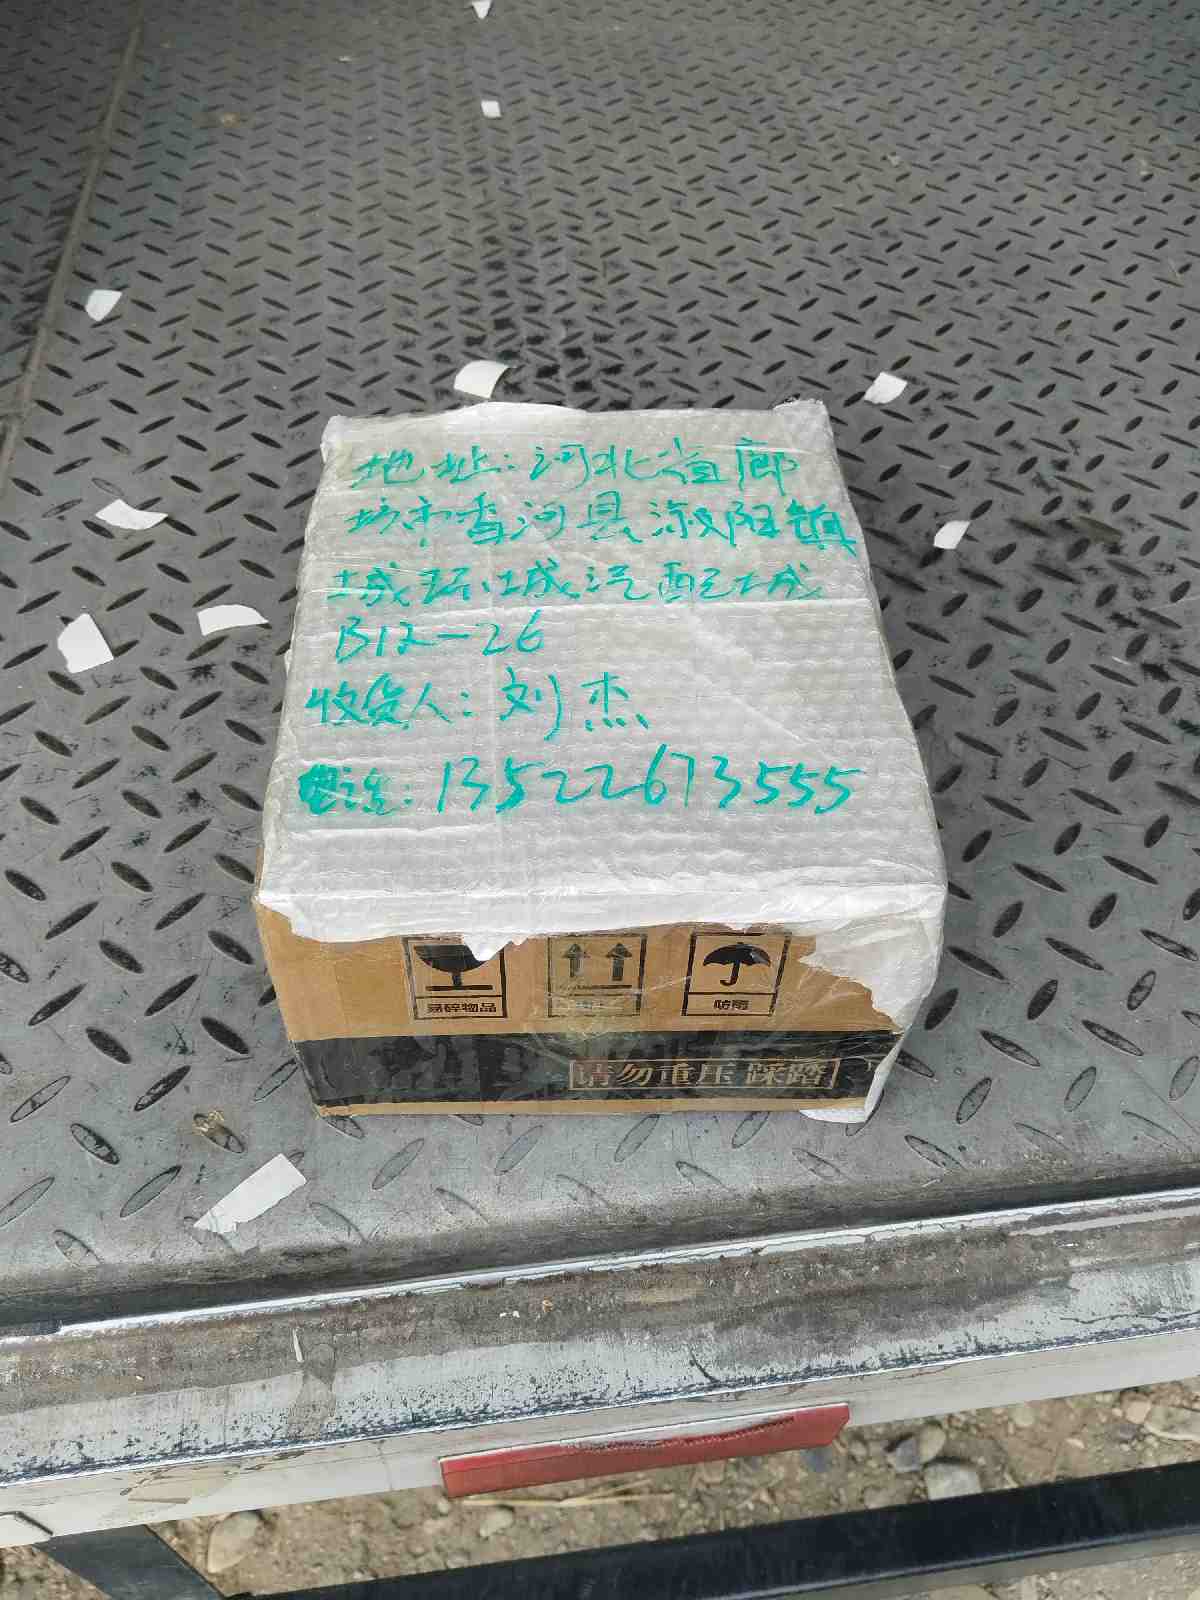 地址:河北省廊
坊市香河县淑阳镇
城环城汽配城
B12-26
收货人:刘杰
电话:13522673555
易碎物品
防雨
请勿重压 踩踏